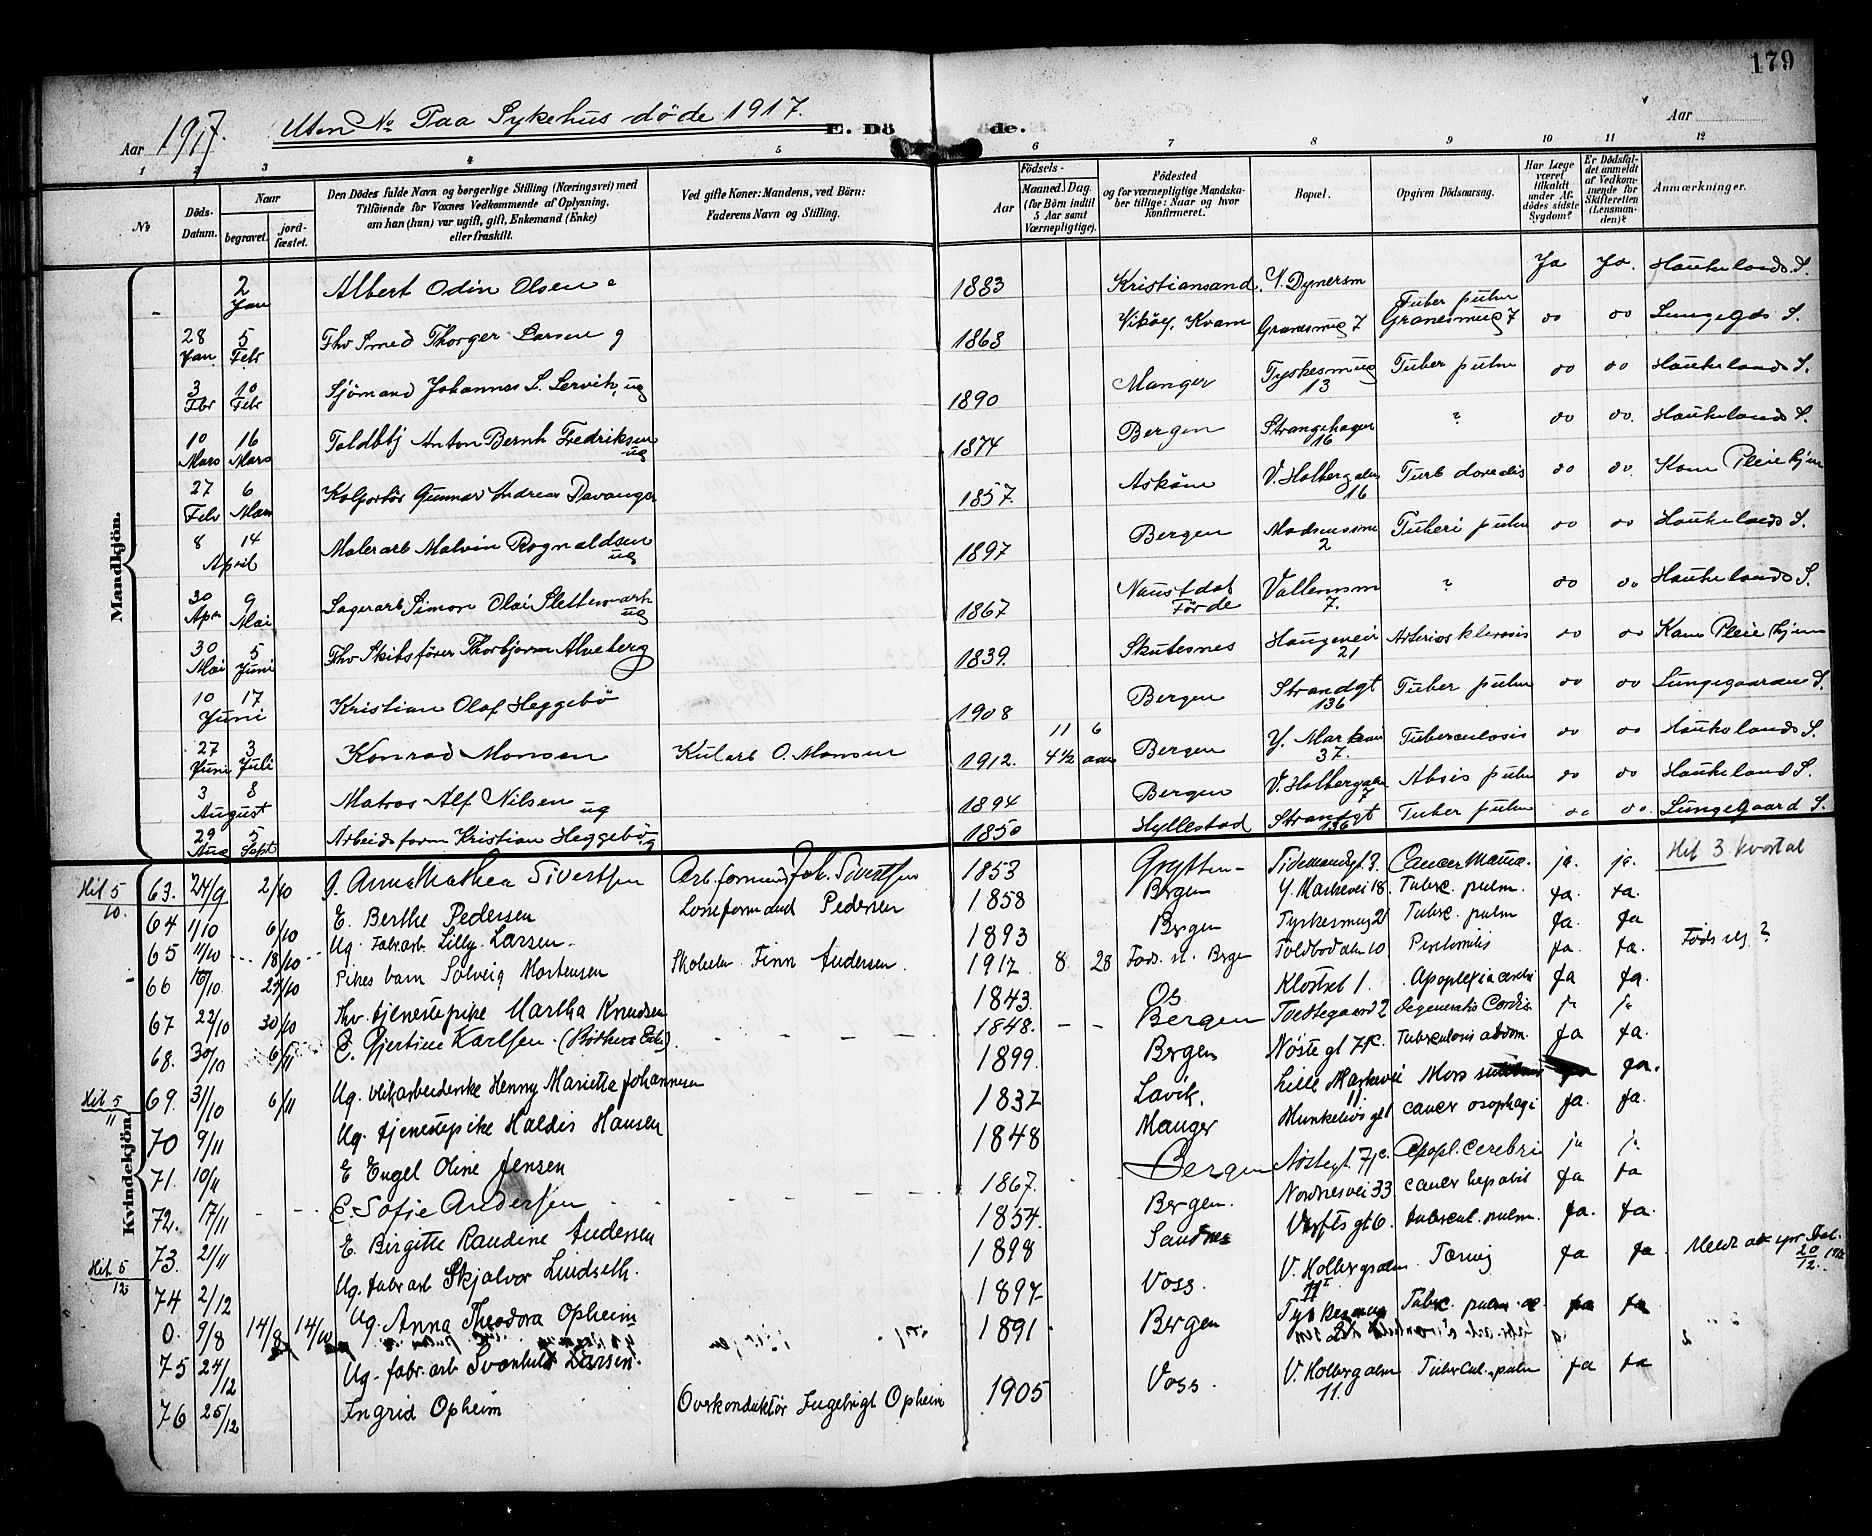 179
Aar 1917. Uten No Paa Sykehus døde 1917. E. Döde. Aar
1 2 3 4 5 6 7 8 9 10 11 12
No
Döds-Datum.
Naar begravet. jordfæstet.
Den Dödes fulde Navn og borgerlige Stilling (Næringsvei) med Tilföiende for Voxnes Vedkommende af Oplysning, om han (hun) var ugift, gift, Enkemand (Enke) eller fraskilt.
Ved gifte Koner: Mandens, ved Börn: Faderens Navn og Stilling.
Födsels-
Aar Maaned. Dag. (for Börn indtil 5 Aar samt Værnepligtige).
Födested og for værnepligtige Mandskaber tillige: Naar og hvor Konfirmeret.
Bopæl.
Opgiven Dödsaarsag.
Har Læge været tilkaldt under Afdödes sidste Sygdom?
Er Dödsfaldet anmeldt af Vedkommende for Skifteretten (Lensmanden)?
Anmærkninger.
Mandkjön.
2 Jan Albert Odin Olsen 1883 Kristiansand Ja Ja. Haukelands S.
28 Jan 5 Febr Fhv Smed Thorger Larsen g 1863 Vikøy, Kvam Granesmug 7 Tuber pulm Granesmug 7 do do Lungegds S.
3 Fbr 10 Febr Sjømand Johannes L. Lervik, ug 1890 Manger Tyskesmug 13 Tuber pulm do do Haukelands S.
10 Mars 16 Mars Toldbtj Anton Bernh Fredriksen ug 1874 Bergen Strangehagen 16 ? do do. Haukelands S.
27 Febr 6 Mars Kolportør Gunnar Andreas Davanger 1857. Askøen V. Holbergalm 16 do do. Kom Pleiehjem
8 14 April Malerarb Malvin Rognaldsen ug 1897 Bergen 2 Tuberi pulm do do Haukelands S.
30 Apr 9 Mai Lagerarb Simon Olai Slettemark ug 1867 Naustdal Førde 7. ? do do Haukelands S.
30 Mai 5 Juni Fhv Skibsfører Thorbjørn Alveberg 1839. Skutesnes Haugeveien 21 Arterios klerosis do do Kom Pleiehjem
10 17 Juni Kristian Olaf Heggebø 1908 Bergen Strandgt 136 Tuber pulm do do Lungegaarden S.
27 Juni 3 Juli Konrad Monsen Kularb O. Monsen 1912. 11 6 4½ aar Bergen Y. Markvei 37. Tuberculosis do do Haukelands S.
3 8 August Matros Alf Nilsen ug 1894 Bergen V. Holbergalm 7 Absis pulm do do Haukeland S.
29 Aug 5 Sept Arbeidsform Kristian Heggebø g 1850 Hyllestad Strandgt 136 Tuber pulm do do. Lungegaard S.
Kvindekjön
Hit 3 kvartal
Hit 5/10. 63. 24/9 2/10 g. Anna Mathea Sivertsen Arb.formand Joh. Sivertsen 1853 Grytten Tidemandsgt 3. Cancer Mama. ja. ja.
64 1/10 6/10 E. Berthe Pedersen Losseformand Pedersen 1858 Bergen Y. Markevei 18. Tuberc. pulm. Ja. Ja.
65 11/10 18/10 Ug. Fabr.arb. Lilly Larsen. 1893 Bergen Tyskesmug 21 Tuberc. pulm Ja. Ja
66 16/10 24/10 Pikes barn Solveig Mortensen Finn Andersen. 1917 8 28 Føds. st. Brgn Toldbod alm 10 Ja. Ja. Føds slg ?
67 22/10 30/10 Fhv. tjenestepike Martha Knudsen 1843. Os Klostret 1. Apoplexia cerebri Ja Ja.
68. 30/10 6/11 E. Gjertine Karlsen. 1848. Bergen Toettegaard 2 Degeneratio Cordis ja ja
69. 31/10 6/11 Ug. vevarbeiderske Henny Marietta Johannesen 1899 Bergen Nøstegt 71c. Tuberculosis abdom. Ja Ja.
Hit 5/11 70 9/11 Ug. tjenestepike Haldis Hansen 1837 Lavik. Lille Markevei 11 Mors Ja.
71. 10/11 E Engel Oline Jensen 1848 Manger Munkelivs gt cancer osophagi Ja. Ja.
72. 17/11 E. Sofie Andersen Bergen Nøstegt 71c. Apopl. cerebri ja ja
73. 21/11 E Birgitte Randine Andersen 1867. Bergen. Nordnesvei 33 cancer hepatis Ja Ja
Hit 5/12 74 2/12 Ug. fabr arb Skjalvor Lindseth. 1854. Sandnes Verftsgt 6. tubercul. pulm. Ja. Ja.
0. 9/8 14/8 14/10 Ug. Anna Theodora Opheim 1898 Voss. V. Holbergsalm. 11 Tæring Ja Ja. Meldt av spr. 20/12. 1918
75 24/12 Ug. fabr. arb Svanhild Larsen. 1897 1891 Bergen Tyskesmug 21 Tuberc. pulm. Ja Ja
76 25/12 Ingrid Opheim Overkonduktør Ingebrigt Opheim 1905 Voss. V. Holbergalm 11. Tubercul. pulm Ja Ja